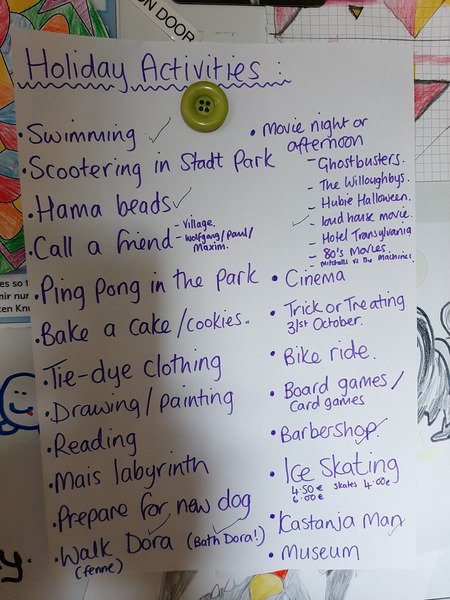 ON DOOR
Holiday Activities :
• Swimming ✓
• Scootering in Stadt Park
• Hama beads ✓
• Call a friend - Village.
- Wolfgang/Paul/
Maxim.
• Ping Pong in the Park
• Bake a cake/cookies.
• Tie-dye clothing
• Drawing/painting
• Reading
• Mais labyrinth
• Prepare for new dog
• Walk Dora (Bath Dora!)
(fenne)
• Movie night or
afternoon
- Ghostbusters.
- The Willoughbys.
- Hubie Halloween.
✓ - loud house movie.
- Hotel Transylvania
- 80's Movies.
- Mitchells vs the Machines.
• Cinema
• Trick or Treating
31st October.
• Bike ride.
• Board games/
Card games
• Barbershop. ✓
• Ice Skating
4.50€ skates 4.00€
6.00€
• Kastanja Man
• Museum